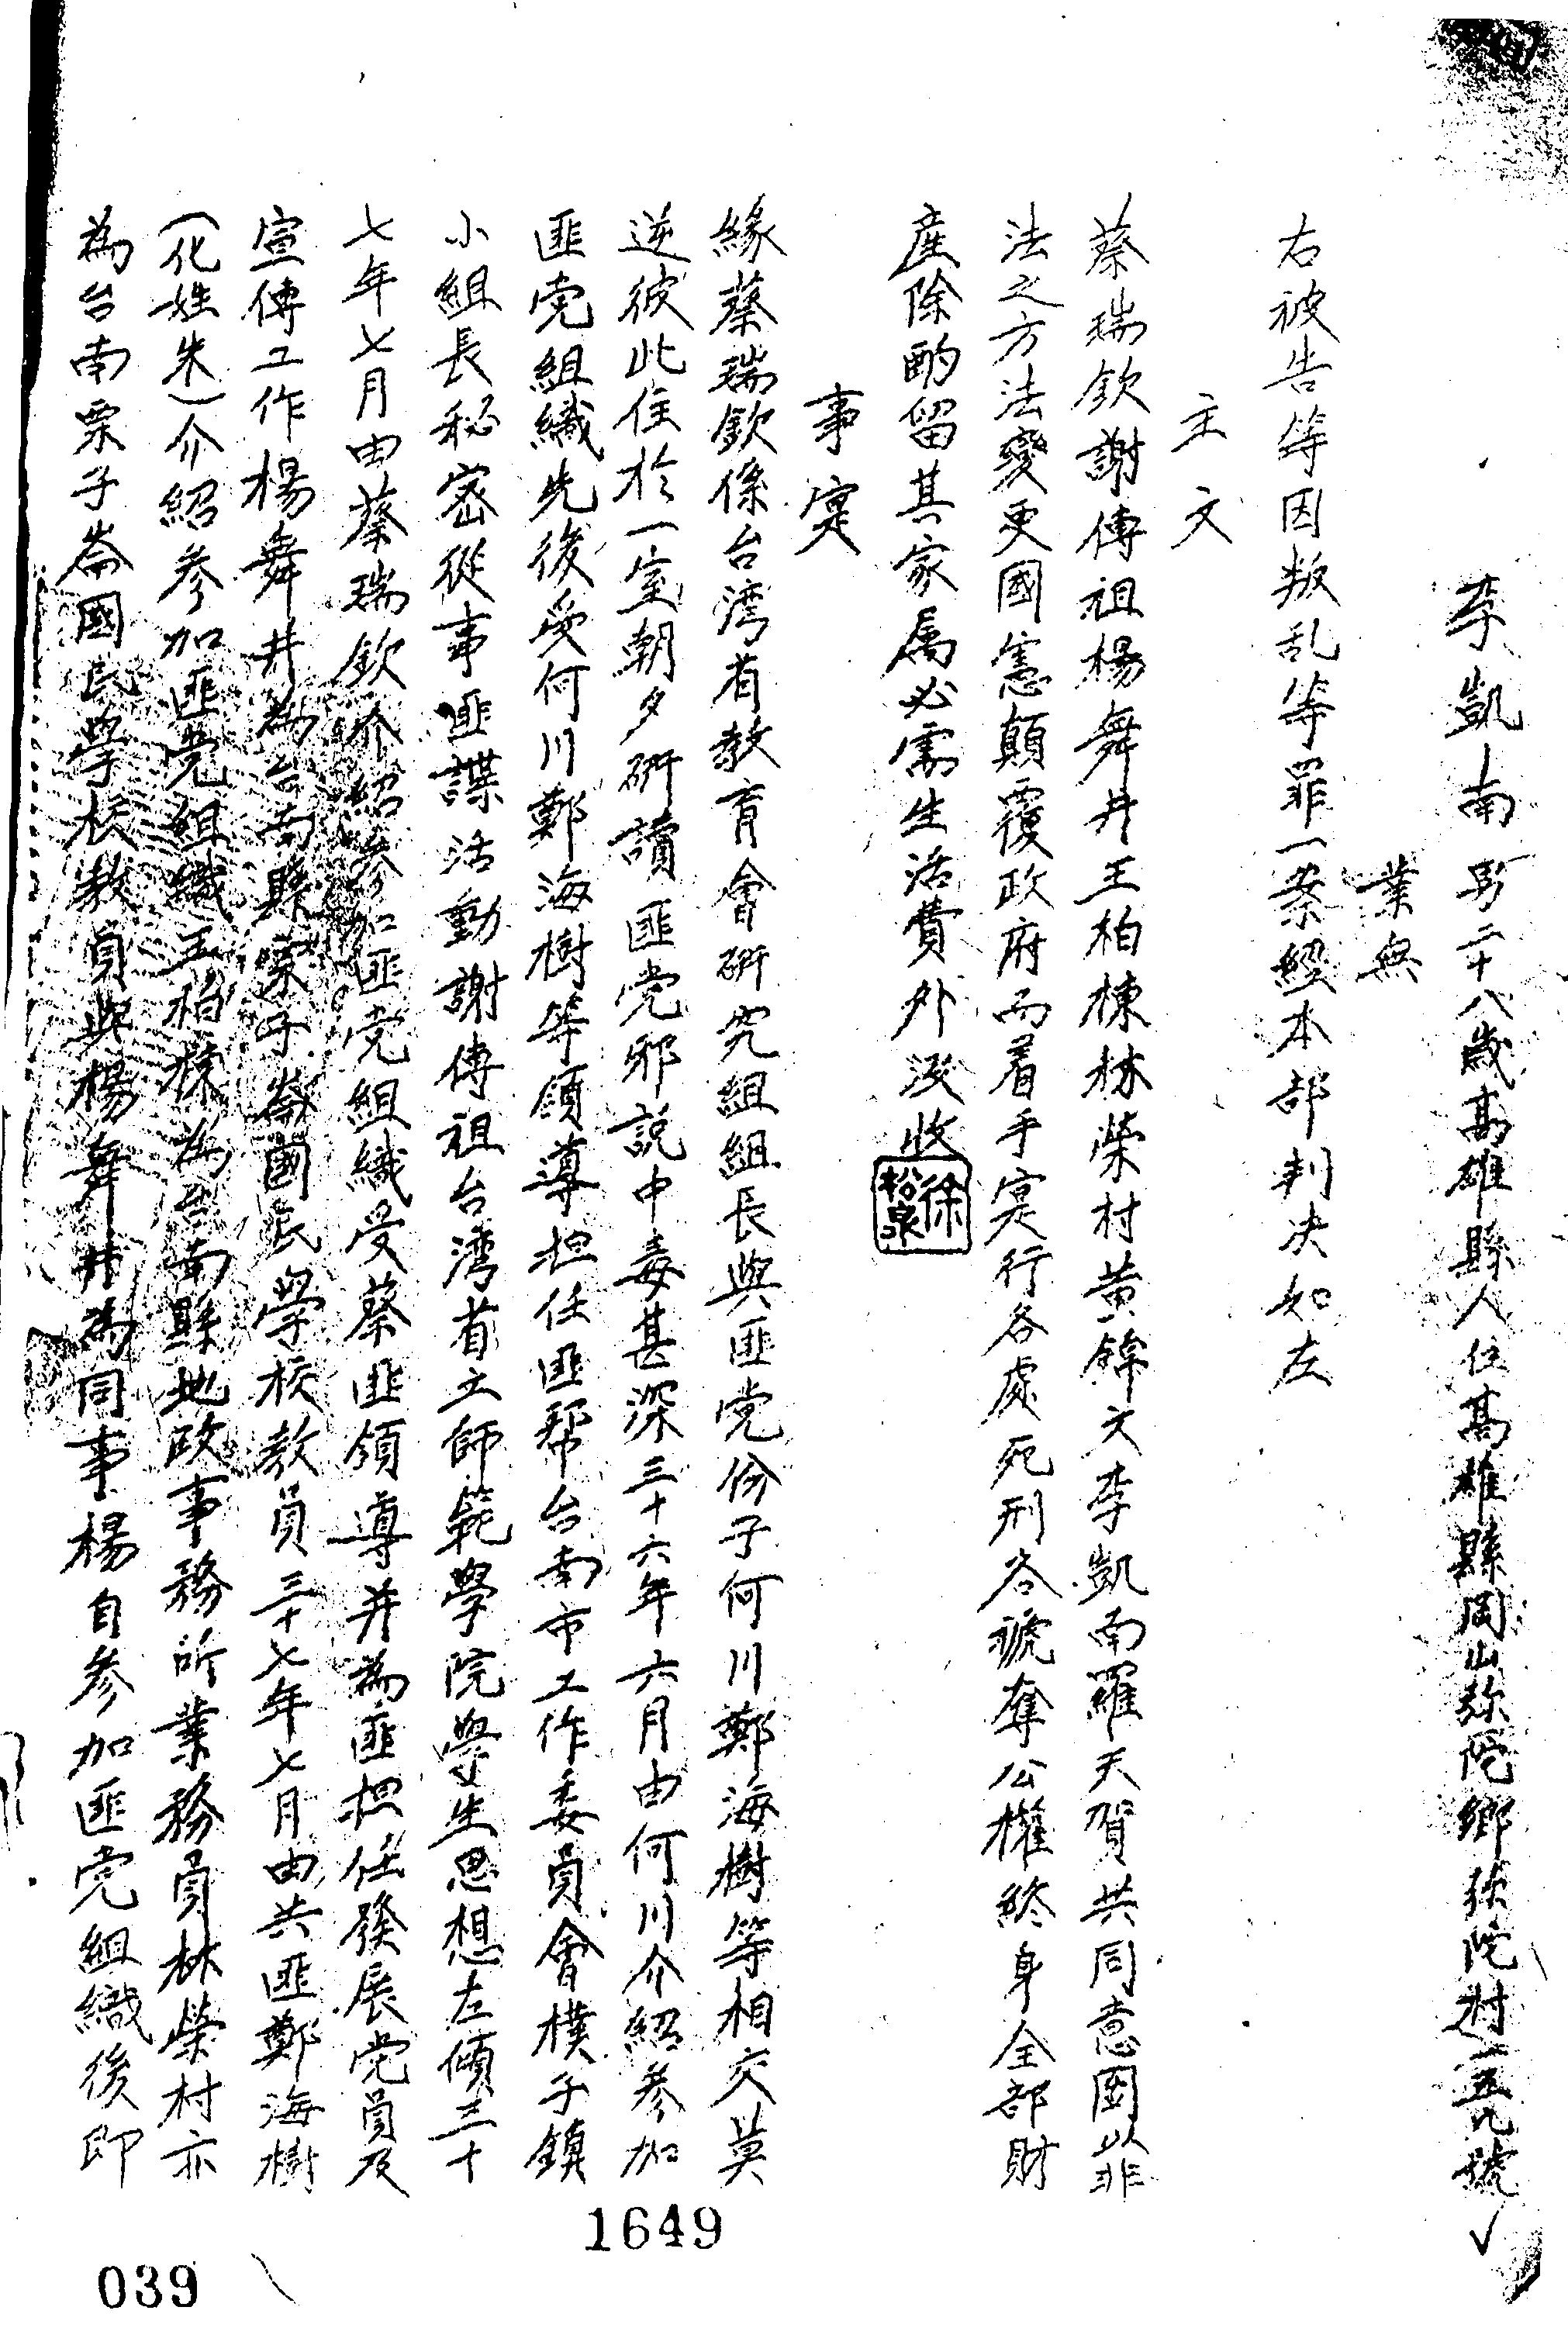 李凱南 男 二十八歲 高雄縣人 住高雄縣岡山弥陀鄉弥陀村一五九號
業無
右被告等因叛乱等罪一案経本部判决如左
主文
蔡瑞欽謝傳祖楊舞井王柏棟林榮村黄錦文李凱南羅天賀共同意圖以非
法之方法変更國憲顛覆政府而着手实行各處死刑各褫奪公權終身全部財
產除酌留其家属必需生活費外没收
徐松泉
事实
緣蔡瑞欽係台湾省教育會研究組組長與匪党份子何川鄭海樹等相交莫
逆彼此住於一室朝夕研讀匪党邪説中毒甚深三十六年六月由何川介紹参加
匪党組織先後受何川鄭海樹等領導担任匪帮台南市工作委員會樸子鎮
小組長秘密從事匪諜活動謝傳祖台湾省立師範學院學生思想左傾三十
七年七月由蔡瑞欽介紹参加匪党組織受蔡匪領導并為匪担任發展党員及
宣傳工作楊舞井為台南縣栗子崙國民學校教員三十七年七月由共匪鄭海樹
(化姓朱)介紹参加匪党組織王柏棟為台南縣地政事務所業務員林榮村亦
為台南栗子崙國民學校教員與楊舞井為同事楊自参加匪党組織後即
1649
039